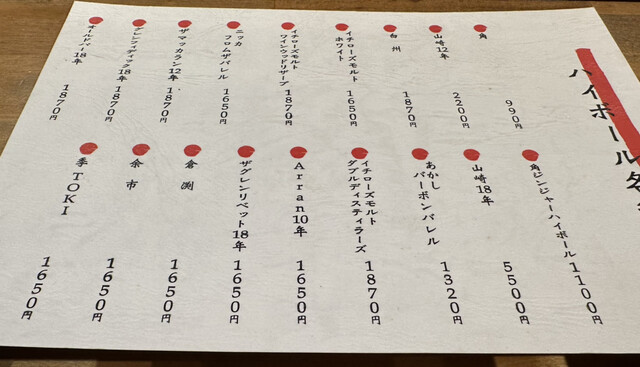 ハイボール各
角
990円
山崎12年
2200円
白州
1870円
イチローズモルト
ホワイト
1650円
イチローズモルト
ワインウッドリザーブ
1870円
ニッカ
フロムザバレル
1650円
ザマッカラン12年
1870円
グレンフィディック18年
1870円
オールドパー18年
1870円
角ジンジャーハイボール
1100円
山崎18年
5500円
あかし
バーボンバレル
1320円
イチローズモルト
ダブルディスティラーズ
1870円
Arran10年
1650円
ザグレンリベット18年
1650円
倉渕
1650円
余市
1650円
季TOKI
1650円